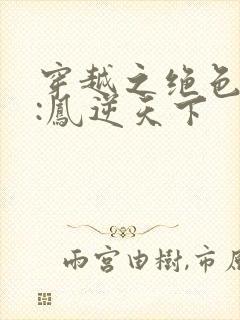 穿越之绝色
:鳳逆天下
雨宮由樹,市原